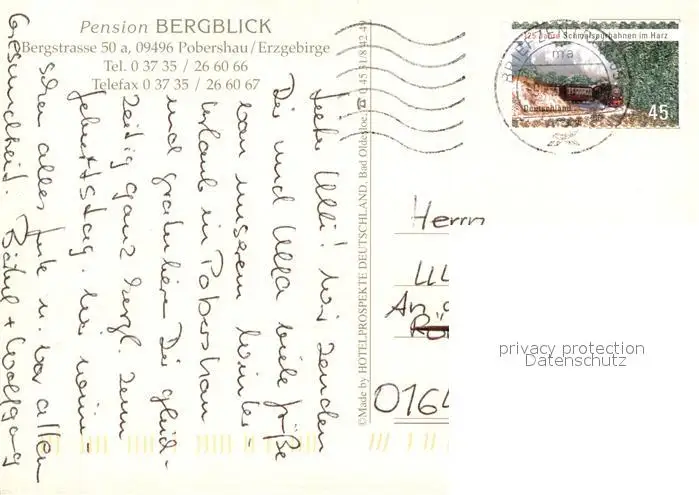 Pension BERGBLICK
Bergstrasse 50 a, 09496 Pobershau/Erzgebirge
Tel. 0 37 35 / 26 60 66
Telefax 0 37 35 / 26 60 67
125 Jahre Schmalspurbahnen im Harz
Deutschland
45
Lieber Ulli! Wir senden
Dir und Ulla viele Grüße
von unserem Winter-
urlaub in Pobershau
und gratulieren Dir gleich-
zeitig ganz herzl. zum
Geburtstag. Wir wün-
schen alles Gute u. vor allem
Gesundheit. + Wolfgang
©Made by HOTELPROSPEKTE DEUTSCHLAND, Bad Oldesloe, ☎ 0 45 31/8 42-49
Herrn
An
0164
privacy protection
Datenschutz